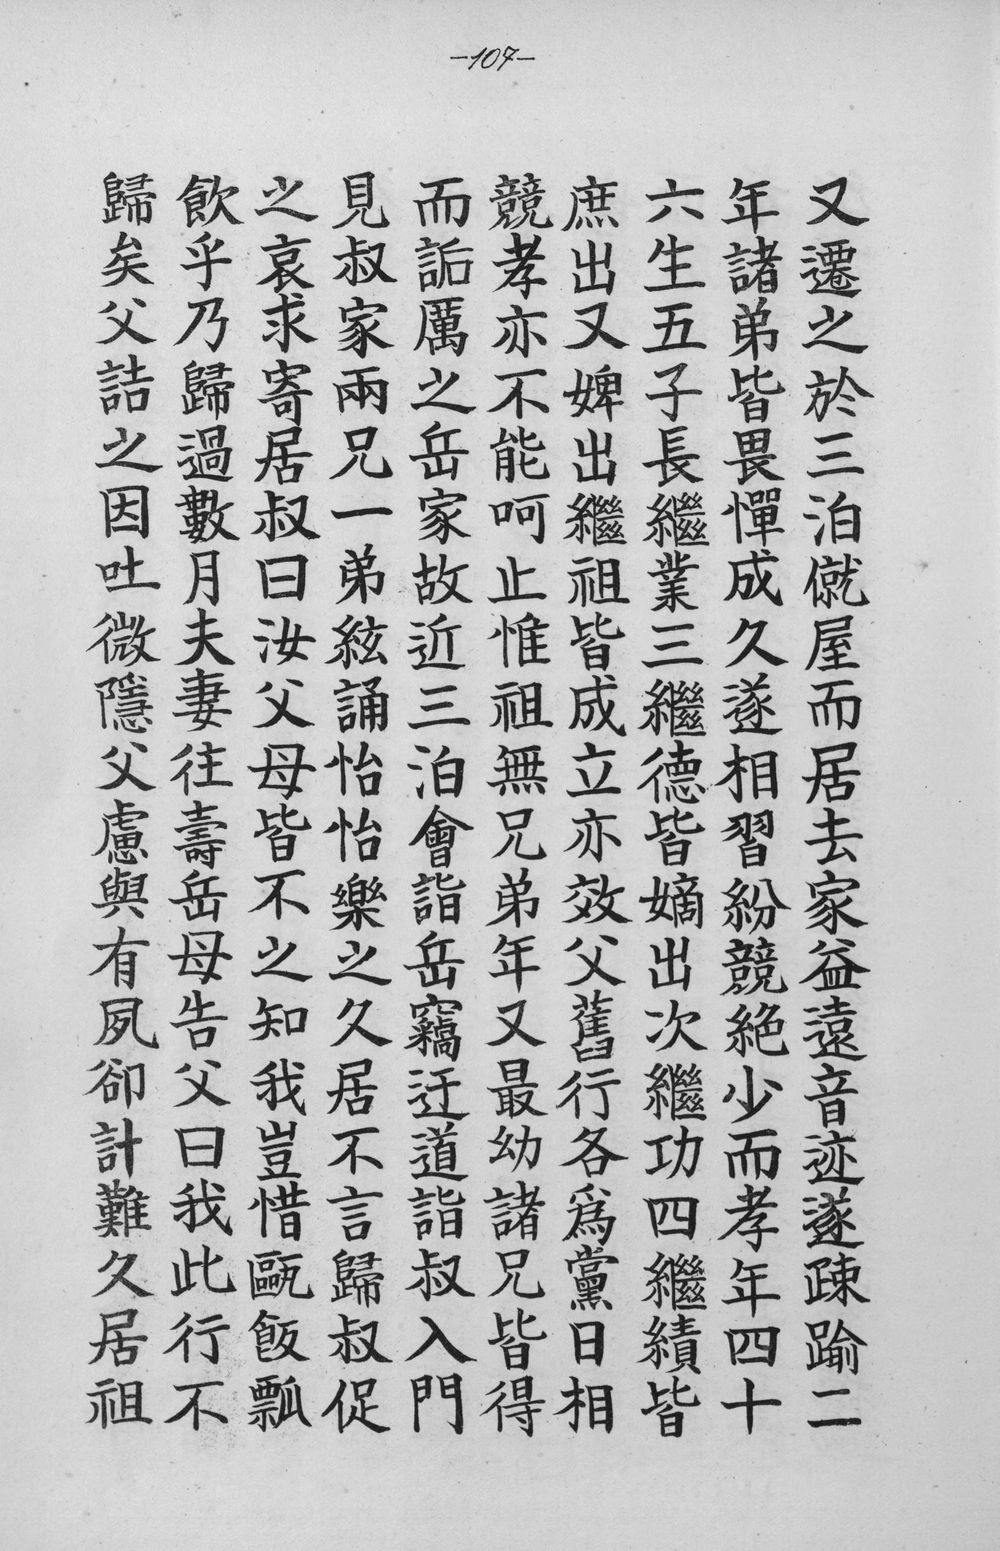 -107-
又遷之於三泊僦屋而居去家益遠音迹遂疎踰二
年諸弟皆畏憚成久遂相習紛競絶少而孝年四十
六生五子長繼業三繼德皆嫡出次繼功四繼績皆
庶出又婢出繼祖皆成立亦效父舊行各爲黨日相
競孝亦不能呵止惟祖無兄弟年又最幼諸兄皆得
而詬厲之岳家故近三泊會詣岳竊迂道詣叔入門
見叔家兩兄一弟絃誦怡怡樂之久居不言歸叔促
之哀求寄居叔曰汝父母皆不之知我豈惜甌飯瓢
飲乎乃歸過數月夫妻往壽岳母告父曰我此行不
歸矣父詰之因吐微隱父慮與有夙卻計難久居祖